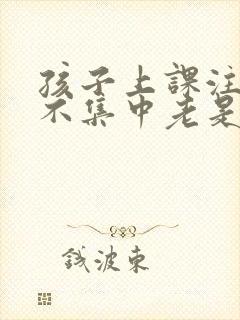 孩子上課注
不集中老是
錢波東